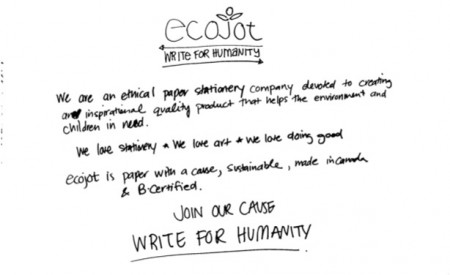 ecojot
WRITE FOR HUMANITY
We are an ethical paper stationery company devoted to creating
an inspirational quality product that helps the environment and
children in need.
We love stationery * We love art * We love doing good
ecojot is paper with a cause, sustainable, made in canada
& B-Certified.
JOIN OUR CAUSE
WRITE FOR HUMANITY